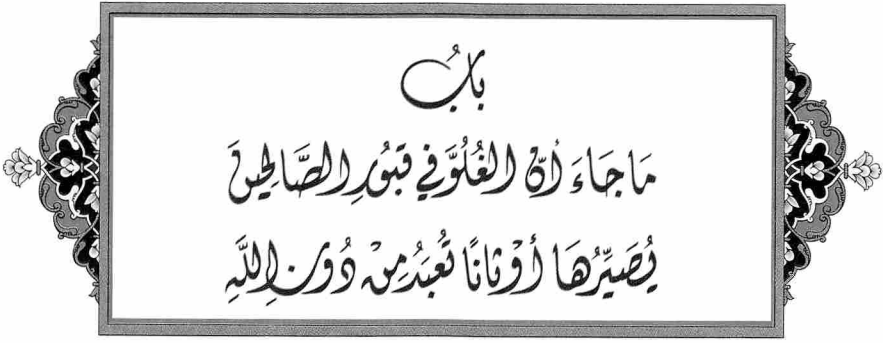 بابُ
مَا جَاءَ أنّ الغُلُوَّ فِي قبُورِ الصَّالحِين
يُصَيِّرُهَا أوْثانًا تُعبَدُ مِنْ دُونِ اللَّهِ